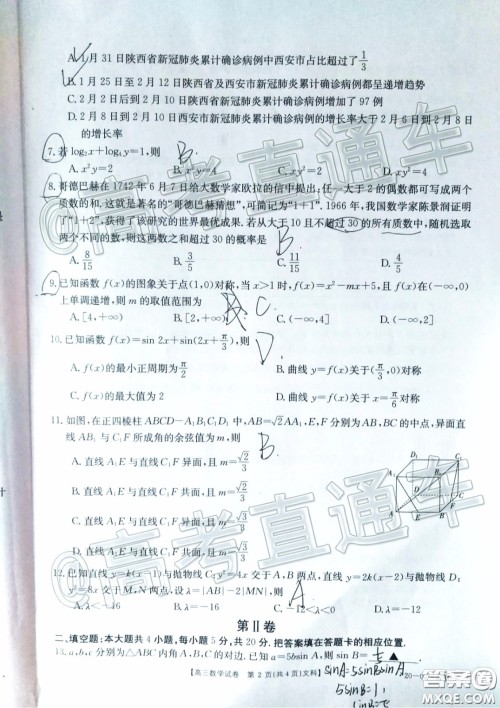 A. 1月31日陕西省新冠肺炎累计确诊病例中西安市占比超过了1/3
B. 1月25日至2月12日陕西省及西安市新冠肺炎累计确诊病例都呈递增趋势
C. 2月2日后到2月10日陕西省新冠肺炎累计确诊病例增加了97例
D. 2月8日到2月10日西安市新冠肺炎累计确诊病例的增长率大于2月6日到2月8日
的增长率
7. 若log₂x+log₄y=1,则 B.
A. x²y=2 C. xy²=2 D. xy²=4
8. 哥德巴赫在1742年6月7日给大数学家欧拉的信中提出:任一大于2的偶数都可写成两个
质数的和.这就是著名的“哥德巴赫猜想”,可简记为“1+1”.1966年,我国数学家陈景润证明
了“1+2”,获得了该研究的世界最优成果.若从大于10且不超过30的所有质数中,随机选取
两个不同的数,则这两数之和超过30的概率是 B.
A. 8/15 B. 3/5 C. 11/15 D. 4/5
9. 已知函数f(x)的图象关于点(1,0)对称,当x>1时,f(x)=x²-mx+5,且f(x)在(-∞,0)
上单调递增,则m的取值范围为 C.
A. [4,+∞) B. [2,+∞) C. (-∞,4] D. (-∞,2]
10. 已知函数f(x)=sin 2x+sin(2x+π/3),则 D.
A. f(x)的最小正周期为π/2 B. 曲线y=f(x)关于(π/3,0)对称
C. f(x)的最大值为2 D. 曲线y=f(x)关于x=π/6对称
11. 如图,在正四棱柱ABCD-A₁B₁C₁D₁中,AB=√2AA₁,E,F分别为AB,BC的中点,异面直
线AB₁与C₁F所成角的余弦值为m,则 B.
A. 直线A₁E与直线C₁F异面,且m=√2/3
B. 直线A₁E与直线C₁F共面,且m=√2/3
C. 直线A₁E与直线C₁F异面,且m=√3/3
D. 直线A₁E与直线C₁F共面,且m=√3/3
12. 已知直线y=k(x-1)与抛物线C:y²=4x交于A,B两点,直线y=2k(x-2)与抛物线D:
y²=8x交于M,N两点,设λ=|AB|-2|MN|,则 A
A. λ<-16 B. λ=-16 C. -12<λ<0 D. λ=-12
第Ⅱ卷
二、填空题:本大题共4小题,每小题5分,共20分.把答案填在答题卡的相应位置.
13. a,b,c分别为△ABC内角A,B,C的对边.已知a=5bsin A,则sin B= ▲
【高三数学试卷 第2页(共4页)文科】
sinA=5sinBsinA
5sinB=1,
高考直通车
高考直通车